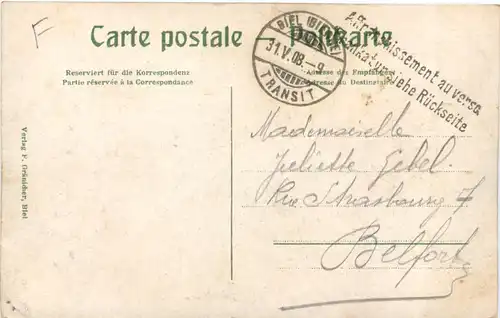 F
Carte postale
Postkarte
BIEL (BIENNE)
31.V.08.-9
TRANSIT
Affranchissement au verso.
Frankatur siehe Rückseite
Reserviert für die Korrespondenz
Partie réservée à la Correspondance
Adresse des Empfängers
Adresse du Destinataire
Mademoiselle
Juliette Gebel.
Rue Strasbourg 7
Belfort
Verlag F. Grünicher, Biel